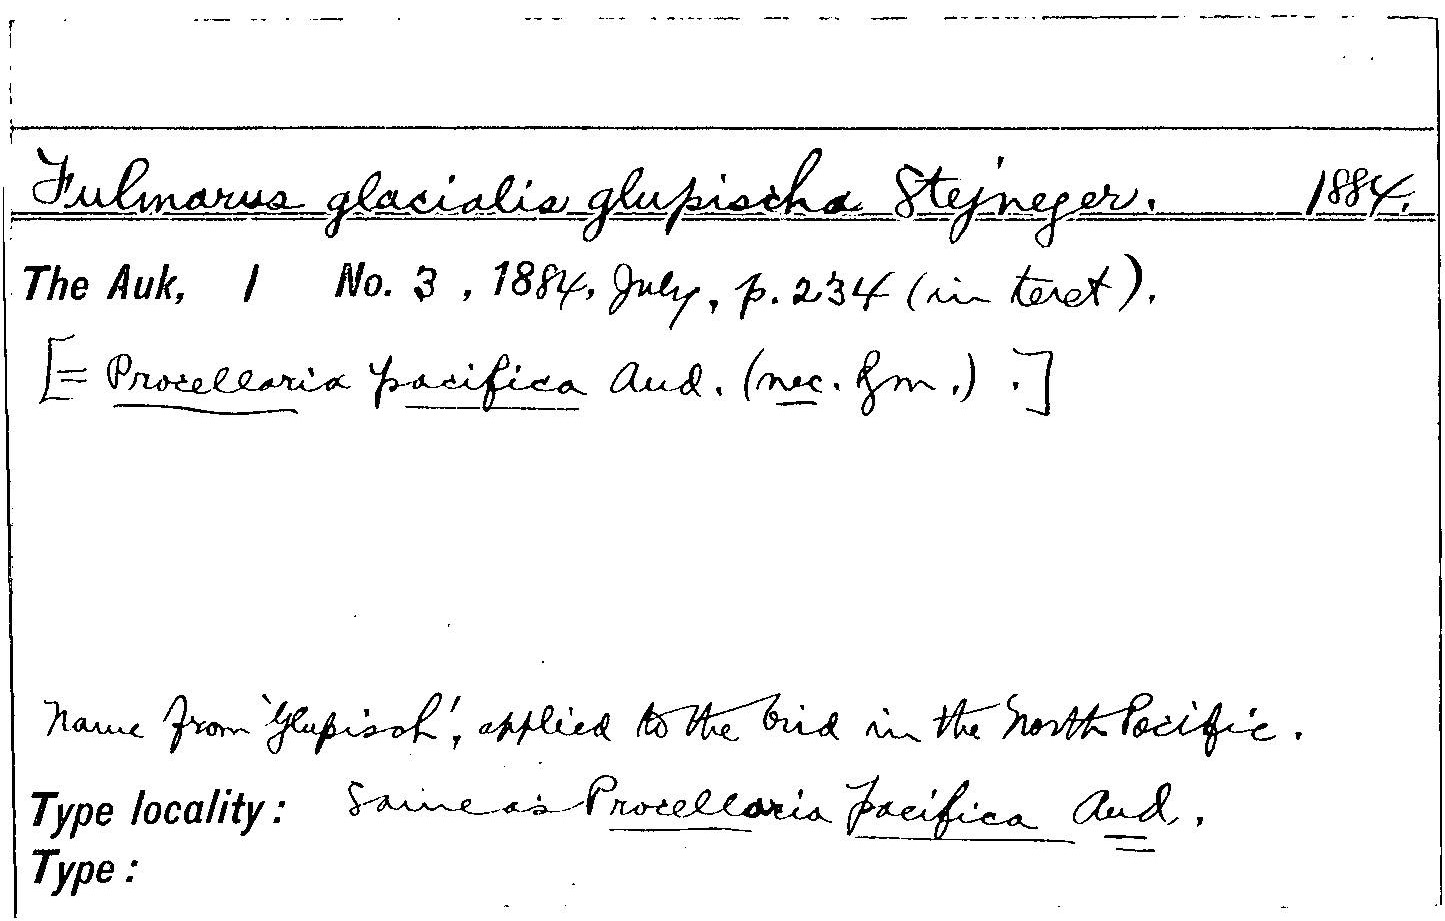 Fulmarus glacialis glupischa Stejneger. 1884.
The Auk, 1 No. 3, 1884, July, p. 234 (in text).
[= Procellaria pacifica Aud. (nec. Gm.).]
Name from 'Glupisch', applied to the bird in the North Pacific.
Type locality: Same as Procellaria pacifica Aud.
Type: